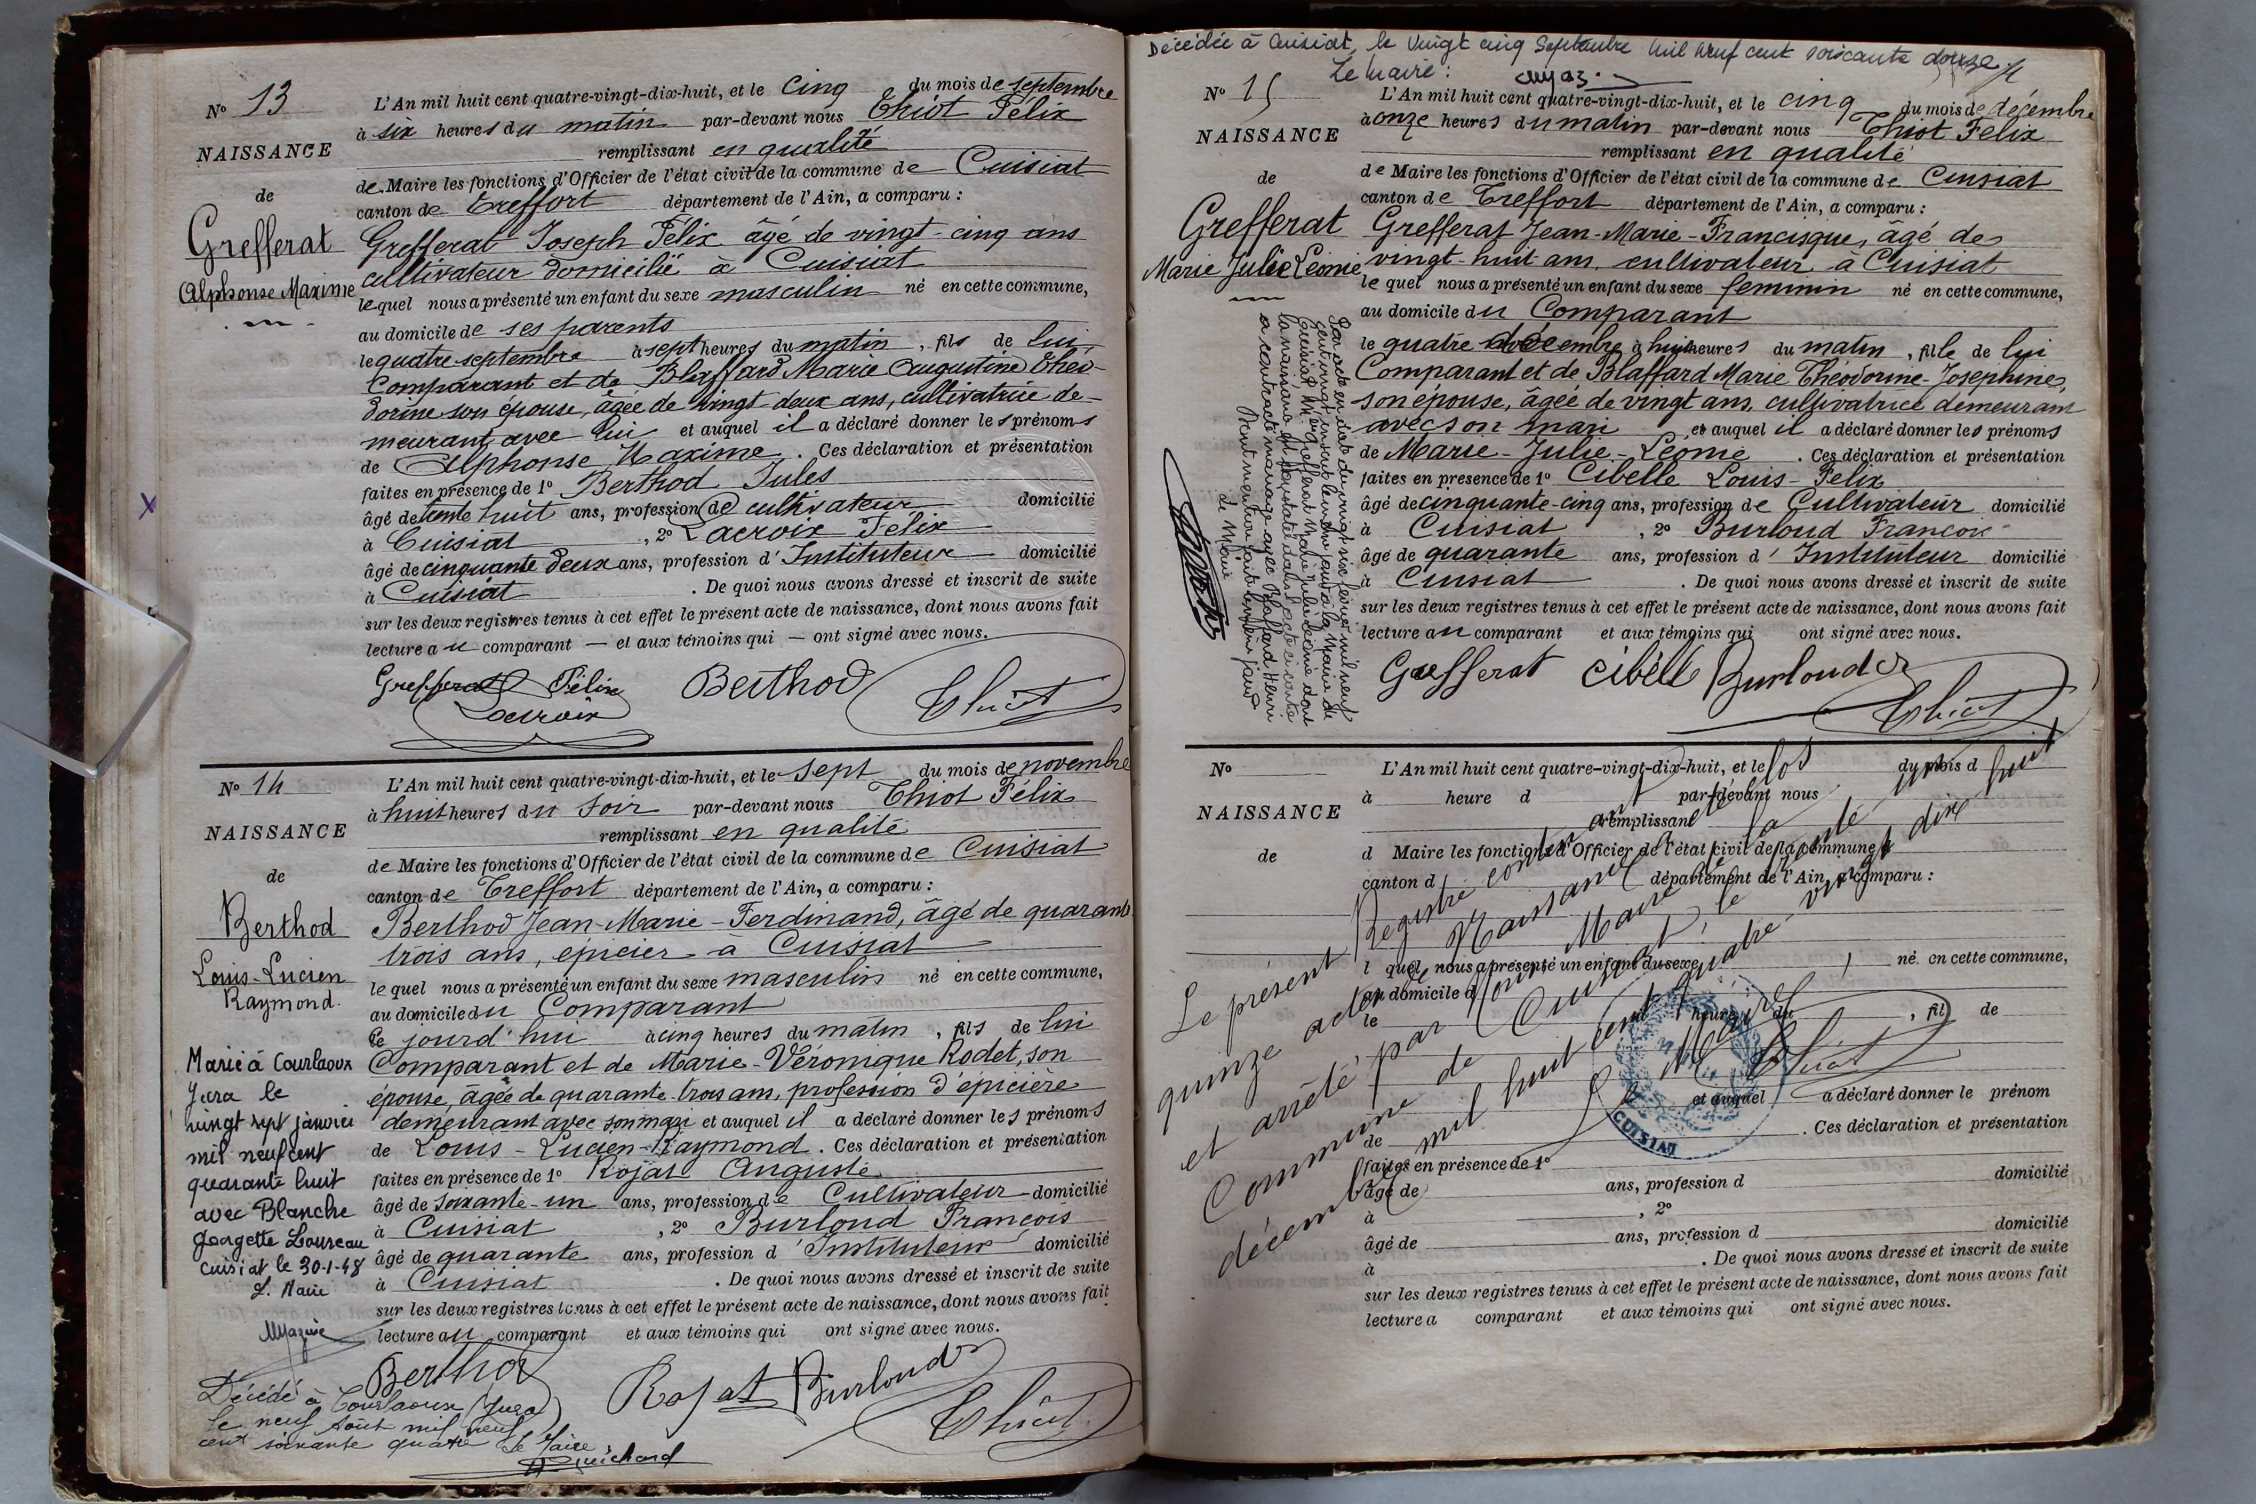 N° 13
NAISSANCE
de
Grefferat
Alphonse Maxime
L'An mil huit cent quatre-vingt-dix-huit, et le cinq du mois de septembre
à six heures du matin par-devant nous Thiot Félix
remplissant en qualité
de Maire les fonctions d'Officier de l'état civil de la commune de Cuisiat
canton de Treffort département de l'Ain, a comparu :
Grefferat Joseph Félix âgé de vingt-cinq ans
cultivateur domicilié à Cuisiat
lequel nous a présenté un enfant du sexe masculin né en cette commune,
au domicile de ses parents
le quatre septembre à sept heures du matin, fils de lui
Comparant et de Blaffard Marie Augustine Théo-
dorine son épouse, âgée de vingt-deux ans, cultivatrice de-
meurant avec lui et auquel il a déclaré donner les prénoms
de Alphonse Maxime. Ces déclaration et présentation
faites en présence de 1° Berthod Jules
âgé de trente huit ans, profession de cultivateur domicilié
à Cuisiat, 2° Lacroix Félix
âgé de cinquante deux ans, profession d'Instituteur domicilié
à Cuisiat. De quoi nous avons dressé et inscrit de suite
sur les deux registres tenus à cet effet le présent acte de naissance, dont nous avons fait
lecture au comparant — et aux témoins qui — ont signé avec nous.
Grefferat Félix Berthod Thiot
Lacroix
N° 14
NAISSANCE
de
Berthod
Louis-Lucien
Raymond.
L'An mil huit cent quatre-vingt-dix-huit, et le sept du mois de novembre
à huit heures du soir par-devant nous Thiot Félix
remplissant en qualité
de Maire les fonctions d'Officier de l'état civil de la commune de Cuisiat
canton de Treffort département de l'Ain, a comparu :
Berthod Jean-Marie-Ferdinand, âgé de quarante
trois ans, épicier à Cuisiat
lequel nous a présenté un enfant du sexe masculin né en cette commune,
au domicile du Comparant
Ce jourd'hui à cinq heures du matin, fils de lui
Comparant et de Marie-Véronique Rodet, son
épouse, âgée de quarante-trois ans, profession d'épicière
demeurant avec son mari et auquel il a déclaré donner les prénoms
de Louis-Lucien-Raymond. Ces déclaration et présentation
faites en présence de 1° Rojat Auguste
âgé de soixante-un ans, profession de Cultivateur domicilié
à Cuisiat, 2° Burloud François
âgé de quarante ans, profession d'Instituteur domicilié
à Cuisiat. De quoi nous avons dressé et inscrit de suite
sur les deux registres tenus à cet effet le présent acte de naissance, dont nous avons fait
lecture au comparant et aux témoins qui ont signé avec nous.
Berthod Rojat Burloud Thiot
Marié à Courlaoux
Jura le
vingt sept janvier
mil neuf cent
quarante huit
avec Blanche
Georgette Loureau
Cuisiat le 30-1-48
L. Maire
Décédé à Courlaoux (Jura)
le neuf Août mil neuf
cent soixante quatre Le Maire,
Guichard
Décédée à Cuisiat, le vingt cinq Septembre mil neuf cent soixante douze.
Le Maire :
N° 15
NAISSANCE
de
Grefferat
Marie Julie Léonie
L'An mil huit cent quatre-vingt-dix-huit, et le cinq du mois de décembre
à onze heures du matin par-devant nous Thiot Félix
remplissant en qualité
de Maire les fonctions d'Officier de l'état civil de la commune de Cuisiat
canton de Treffort département de l'Ain, a comparu :
Grefferat Jean-Marie-Francisque, âgé de
vingt-huit ans, cultivateur à Cuisiat
le quel nous a présenté un enfant du sexe feminin né en cette commune,
au domicile du Comparant
le quatre décembre à huit heures du matin, fille de lui
Comparant et de Blaffard Marie Théodorine-Josephine,
son épouse, âgée de vingt ans, cultivatrice demeurant
avec son mari et auquel il a déclaré donner les prénoms
de Marie-Julie-Léonie. Ces déclaration et présentation
faites en présence de 1° Cibelle Louis-Felix
âgé de cinquante-cinq ans, profession de Cultivateur domicilié
à Cuisiat, 2° Burloud François
âgé de quarante ans, profession d'Instituteur domicilié
à Cuisiat. De quoi nous avons dressé et inscrit de suite
sur les deux registres tenus à cet effet le présent acte de naissance, dont nous avons fait
lecture au comparant et aux témoins qui ont signé avec nous.
Grefferat Cibelle Burloud Thiot
Par acte en date du vingt six février mil neuf
cent vingt
Cuisiat, Grefferat Marie Julie Léonie dont
la naissance est constatée dans l'acte ci-contre
a contracté mariage avec Blaffard Henri
Dont mention faite
Le Maire
N°
NAISSANCE
de
L'An mil huit cent quatre-vingt-dix-huit, et le du mois d
à heure d par-devant nous
remplissant
d Maire les fonctions d'Officier de l'état civil de la commune d
canton d département de l'Ain, a comparu :
l quel nous a présenté un enfant du sexe né en cette commune,
au domicile d
le heure du , fil de
et auquel a déclaré donner le prénom
de . Ces déclaration et présentation
faites en présence de 1°
âgé de ans, profession d domicilié
à , 2°
âgé de ans, profession d domicilié
à . De quoi nous avons dressé et inscrit de suite
sur les deux registres tenus à cet effet le présent acte de naissance, dont nous avons fait
lecture a comparant et aux témoins qui ont signé avec nous.
Le présent Registre contenant
quinze actes de Naissance
et arrêté par Nous Maire de la
Commune de Cuisiat, le trente un
décembre mil huit cent quatre-vingt dix huit
Le Maire
Thiot
CUISIAT